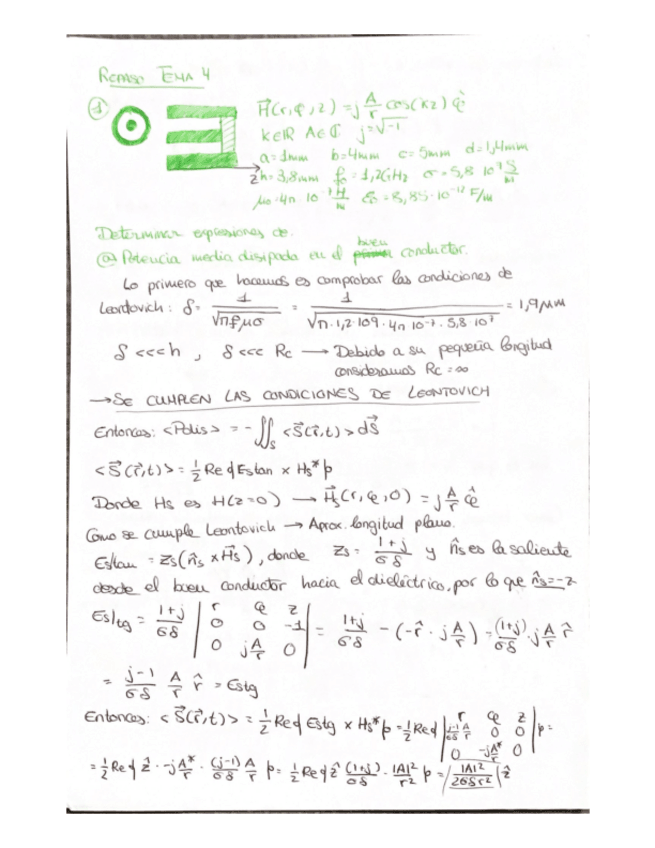 Repaso TEMA 4
① H⃗(r,φ,z) = j A/r cos(kz) φ̂
K∈ℝ A∈ℂ j=√-1
a=1mm b=4mm c=5mm d=1,4mm
z h=3,8mm f₀=1,2GHz σ=5,8 10⁷ S/m
μ₀=4π 10⁻⁷ H/m ε₀=8,85·10⁻¹² F/m
Determinar expresiones de:
buen
ⓐ Potencia media disipada en el conductor.
Lo primero que hacemos es comprobar las condiciones de
Leontovich: δ = 1/√πfμσ = 1/√π·1,2·10⁹·4π 10⁻⁷·5,8 10⁷ = 1,9μm
δ <<< h , δ <<< Rc → Debido a su pequeña longitud
consideramos Rc = ∞
→ SE CUMPLEN LAS CONDICIONES DE LEONTOVICH
Entonces: <Pdis> = - ∬s <S⃗(r⃗,t)> dS⃗
<S⃗(r⃗,t)> = 1/2 Re{Estan × Hs*}
Donde Hs es H(z=0) → H⃗s(r,φ,0) = j A/r φ̂
Como se cumple Leontovich → Aprox. longitud plano.
Estan = Zs(n̂s × H⃗s), donde Zs = 1+j/σδ y n̂s es la saliente
desde el buen conductor hacia el dieléctrico, por lo que n̂s=-z
Es]tg = 1+j/σδ | r φ z | 0 0 -1 | 0 jA/r 0 | = 1+j/σδ - (-r̂ · j A/r) = (1+j)/σδ · j A/r r̂
= j-1/σδ A/r r̂ = Estg
Entonces: <S⃗(r⃗,t)> = 1/2 Re{Estg × Hs*} = 1/2 Re{| r φ z | j-1/σδ A/r 0 0 | 0 -jA*/r 0 |} =
= 1/2 Re{ẑ · -jA*/r · (j-1)/σδ A/r} = 1/2 Re{ẑ (1+j)/σδ · |A|²/r²} = |A|²/2σδr² ẑ